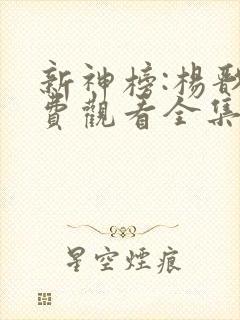 新神榜:楊
費觀看全集
星空煙痕